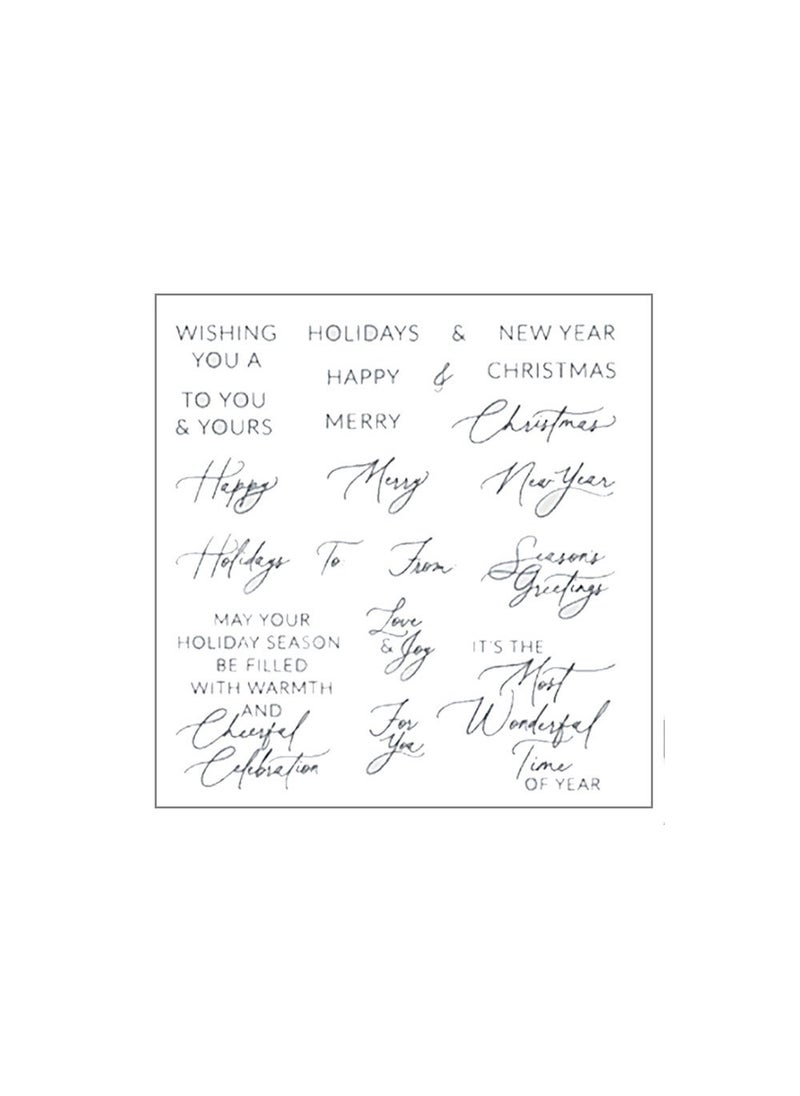 WISHING YOU A
HOLIDAYS
&
NEW YEAR
HAPPY
&
CHRISTMAS
TO YOU
& YOURS
MERRY
Christmas
Happy
Merry
New Year
Holidays
To
From
Season's
Greetings
MAY YOUR
HOLIDAY SEASON
BE FILLED
WITH WARMTH
AND
Cheerful
Celebration
Love
& Joy
For
You
IT'S THE
Most
Wonderful
Time
OF YEAR